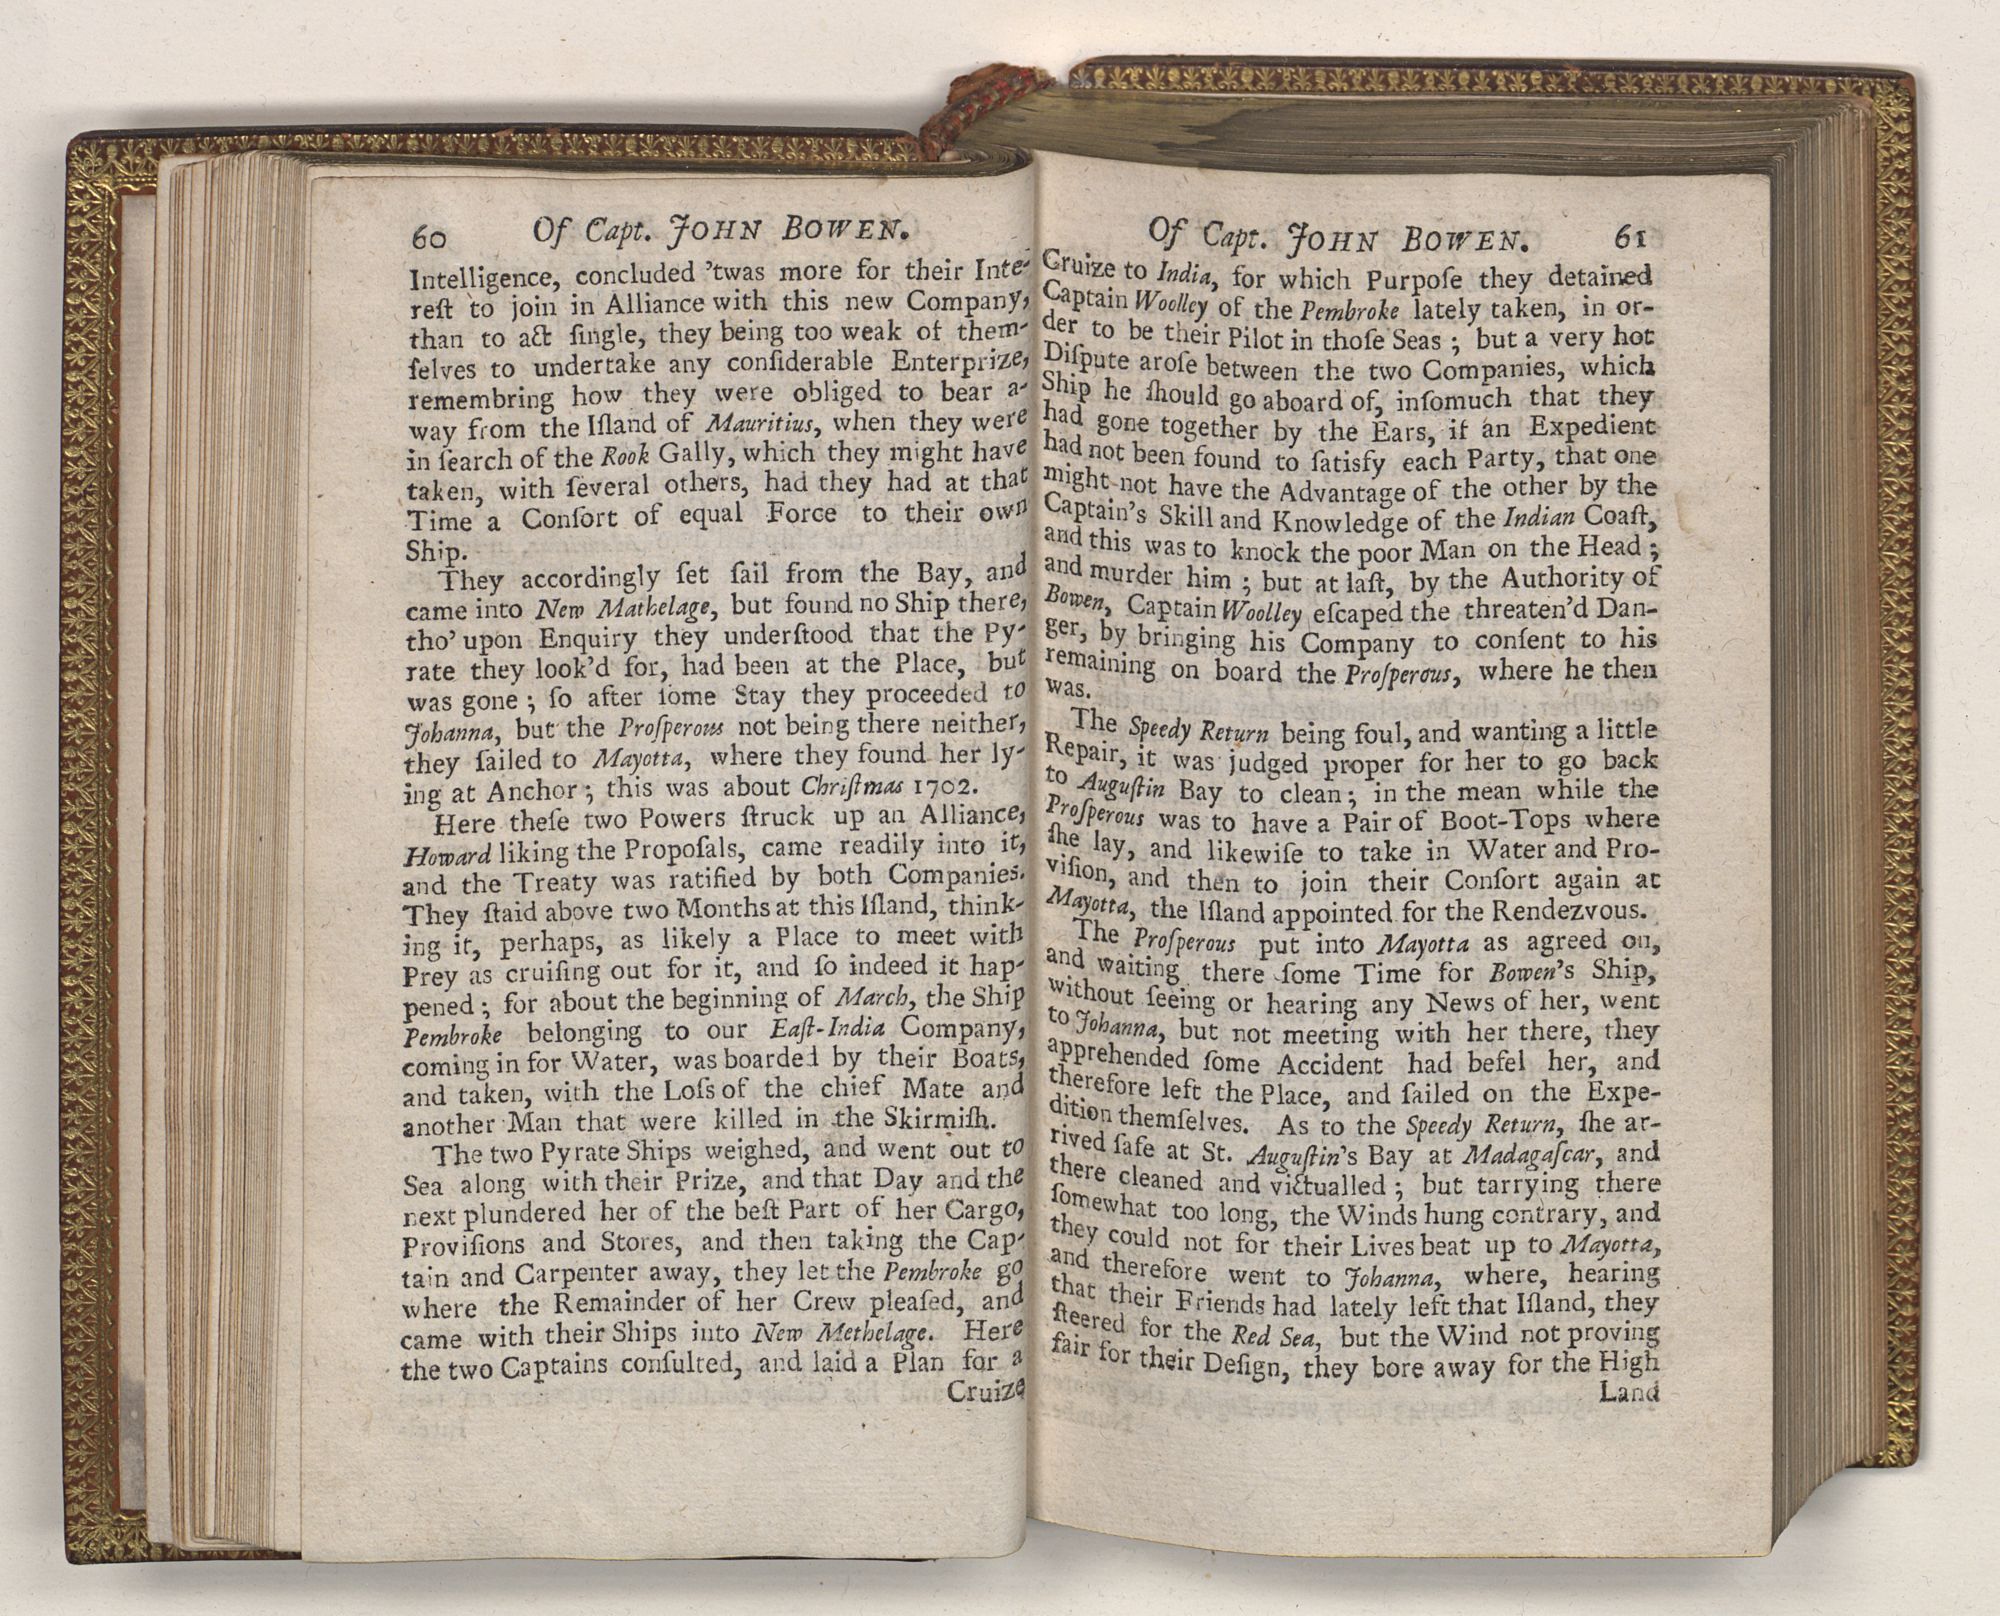 60 Of Capt. JOHN BOWEN.
Intelligence, concluded ’twas more for their Inte-
reſt to join in Alliance with this new Company,
than to act ſingle, they being too weak of them-
ſelves to undertake any conſiderable Enterprize,
remembring how they were obliged to bear a-
way from the Iſland of Mauritius, when they were
in ſearch of the Rook Gally, which they might have
taken, with ſeveral others, had they had at that
Time a Conſort of equal Force to their own
Ship.
They accordingly ſet ſail from the Bay, and
came into New Mathelage, but found no Ship there,
tho’ upon Enquiry they underſtood that the Py-
rate they look’d for, had been at the Place, but
was gone; ſo after ſome Stay they proceeded to
Johanna, but the Proſperous not being there neither,
they ſailed to Mayotta, where they found her ly-
ing at Anchor; this was about Chriſtmas 1702.
Here theſe two Powers ſtruck up an Alliance,
Howard liking the Propoſals, came readily into it,
and the Treaty was ratified by both Companies.
They ſtaid above two Months at this Iſland, think-
ing it, perhaps, as likely a Place to meet with
Prey as cruiſing out for it, and ſo indeed it hap-
pened; for about the beginning of March, the Ship
Pembroke belonging to our Eaſt-India Company,
coming in for Water, was boarded by their Boats,
and taken, with the Loſs of the chief Mate and
another Man that were killed in the Skirmiſh.
The two Pyrate Ships weighed, and went out to
Sea along with their Prize, and that Day and the
next plundered her of the beſt Part of her Cargo,
Proviſions and Stores, and then taking the Cap-
tain and Carpenter away, they let the Pembroke go
where the Remainder of her Crew pleaſed, and
came with their Ships into New Methelage. Here
the two Captains conſulted, and laid a Plan for a
Cruize
Of Capt. JOHN BOWEN. 61
Cruize to India, for which Purpoſe they detained
Captain Woolley of the Pembroke lately taken, in or-
der to be their Pilot in thoſe Seas; but a very hot
Diſpute aroſe between the two Companies, which
Ship he ſhould go aboard of, inſomuch that they
had gone together by the Ears, if an Expedient
had not been found to ſatisfy each Party, that one
might not have the Advantage of the other by the
Captain’s Skill and Knowledge of the Indian Coaſt,
and this was to knock the poor Man on the Head;
and murder him; but at laſt, by the Authority of
Bowen, Captain Woolley eſcaped the threaten’d Dan-
ger, by bringing his Company to conſent to his
remaining on board the Proſperous, where he then
was.
The Speedy Return being foul, and wanting a little
Repair, it was judged proper for her to go back
to Auguſtin Bay to clean; in the mean while the
Proſperous was to have a Pair of Boot-Tops where
ſhe lay, and likewiſe to take in Water and Pro-
viſion, and then to join their Conſort again at
Mayotta, the Iſland appointed for the Rendezvous.
The Proſperous put into Mayotta as agreed on,
and waiting there ſome Time for Bowen’s Ship,
without ſeeing or hearing any News of her, went
to Johanna, but not meeting with her there, they
apprehended ſome Accident had befel her, and
therefore left the Place, and ſailed on the Expe-
dition themſelves. As to the Speedy Return, ſhe ar-
rived ſafe at St. Auguſtin’s Bay at Madagaſcar, and
there cleaned and victualled; but tarrying there
ſomewhat too long, the Winds hung contrary, and
they could not for their Lives beat up to Mayotta,
and therefore went to Johanna, where, hearing
that their Friends had lately left that Iſland, they
ſteered for the Red Sea, but the Wind not proving
fair for their Deſign, they bore away for the High
Land